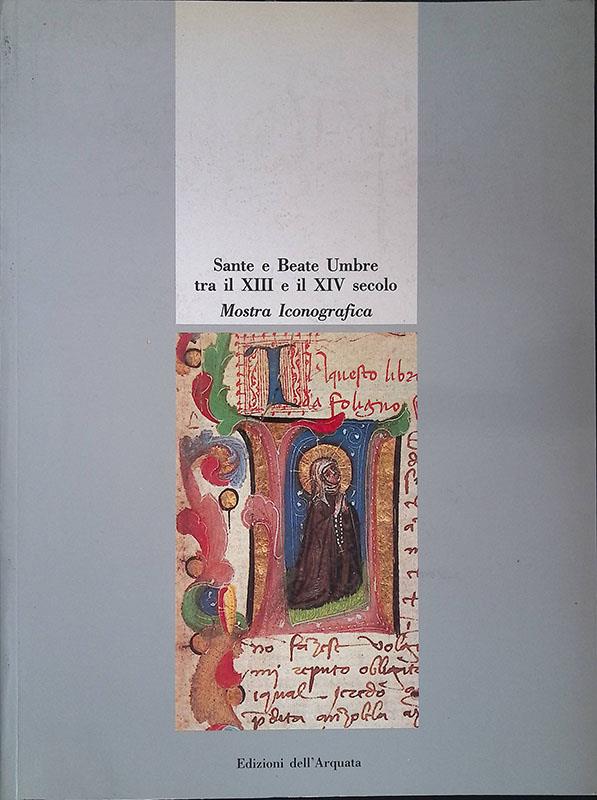 Sante e Beate Umbre
tra il XIII e il XIV secolo
Mostra Iconografica
I
Iquesto libr
da foligno
no
mi reputo
iqual
Edizioni dell'Arquata